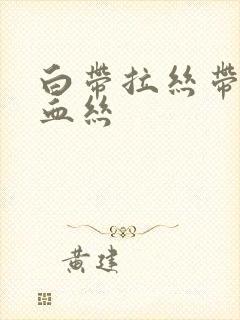 白帶拉絲帶
血絲
黃建